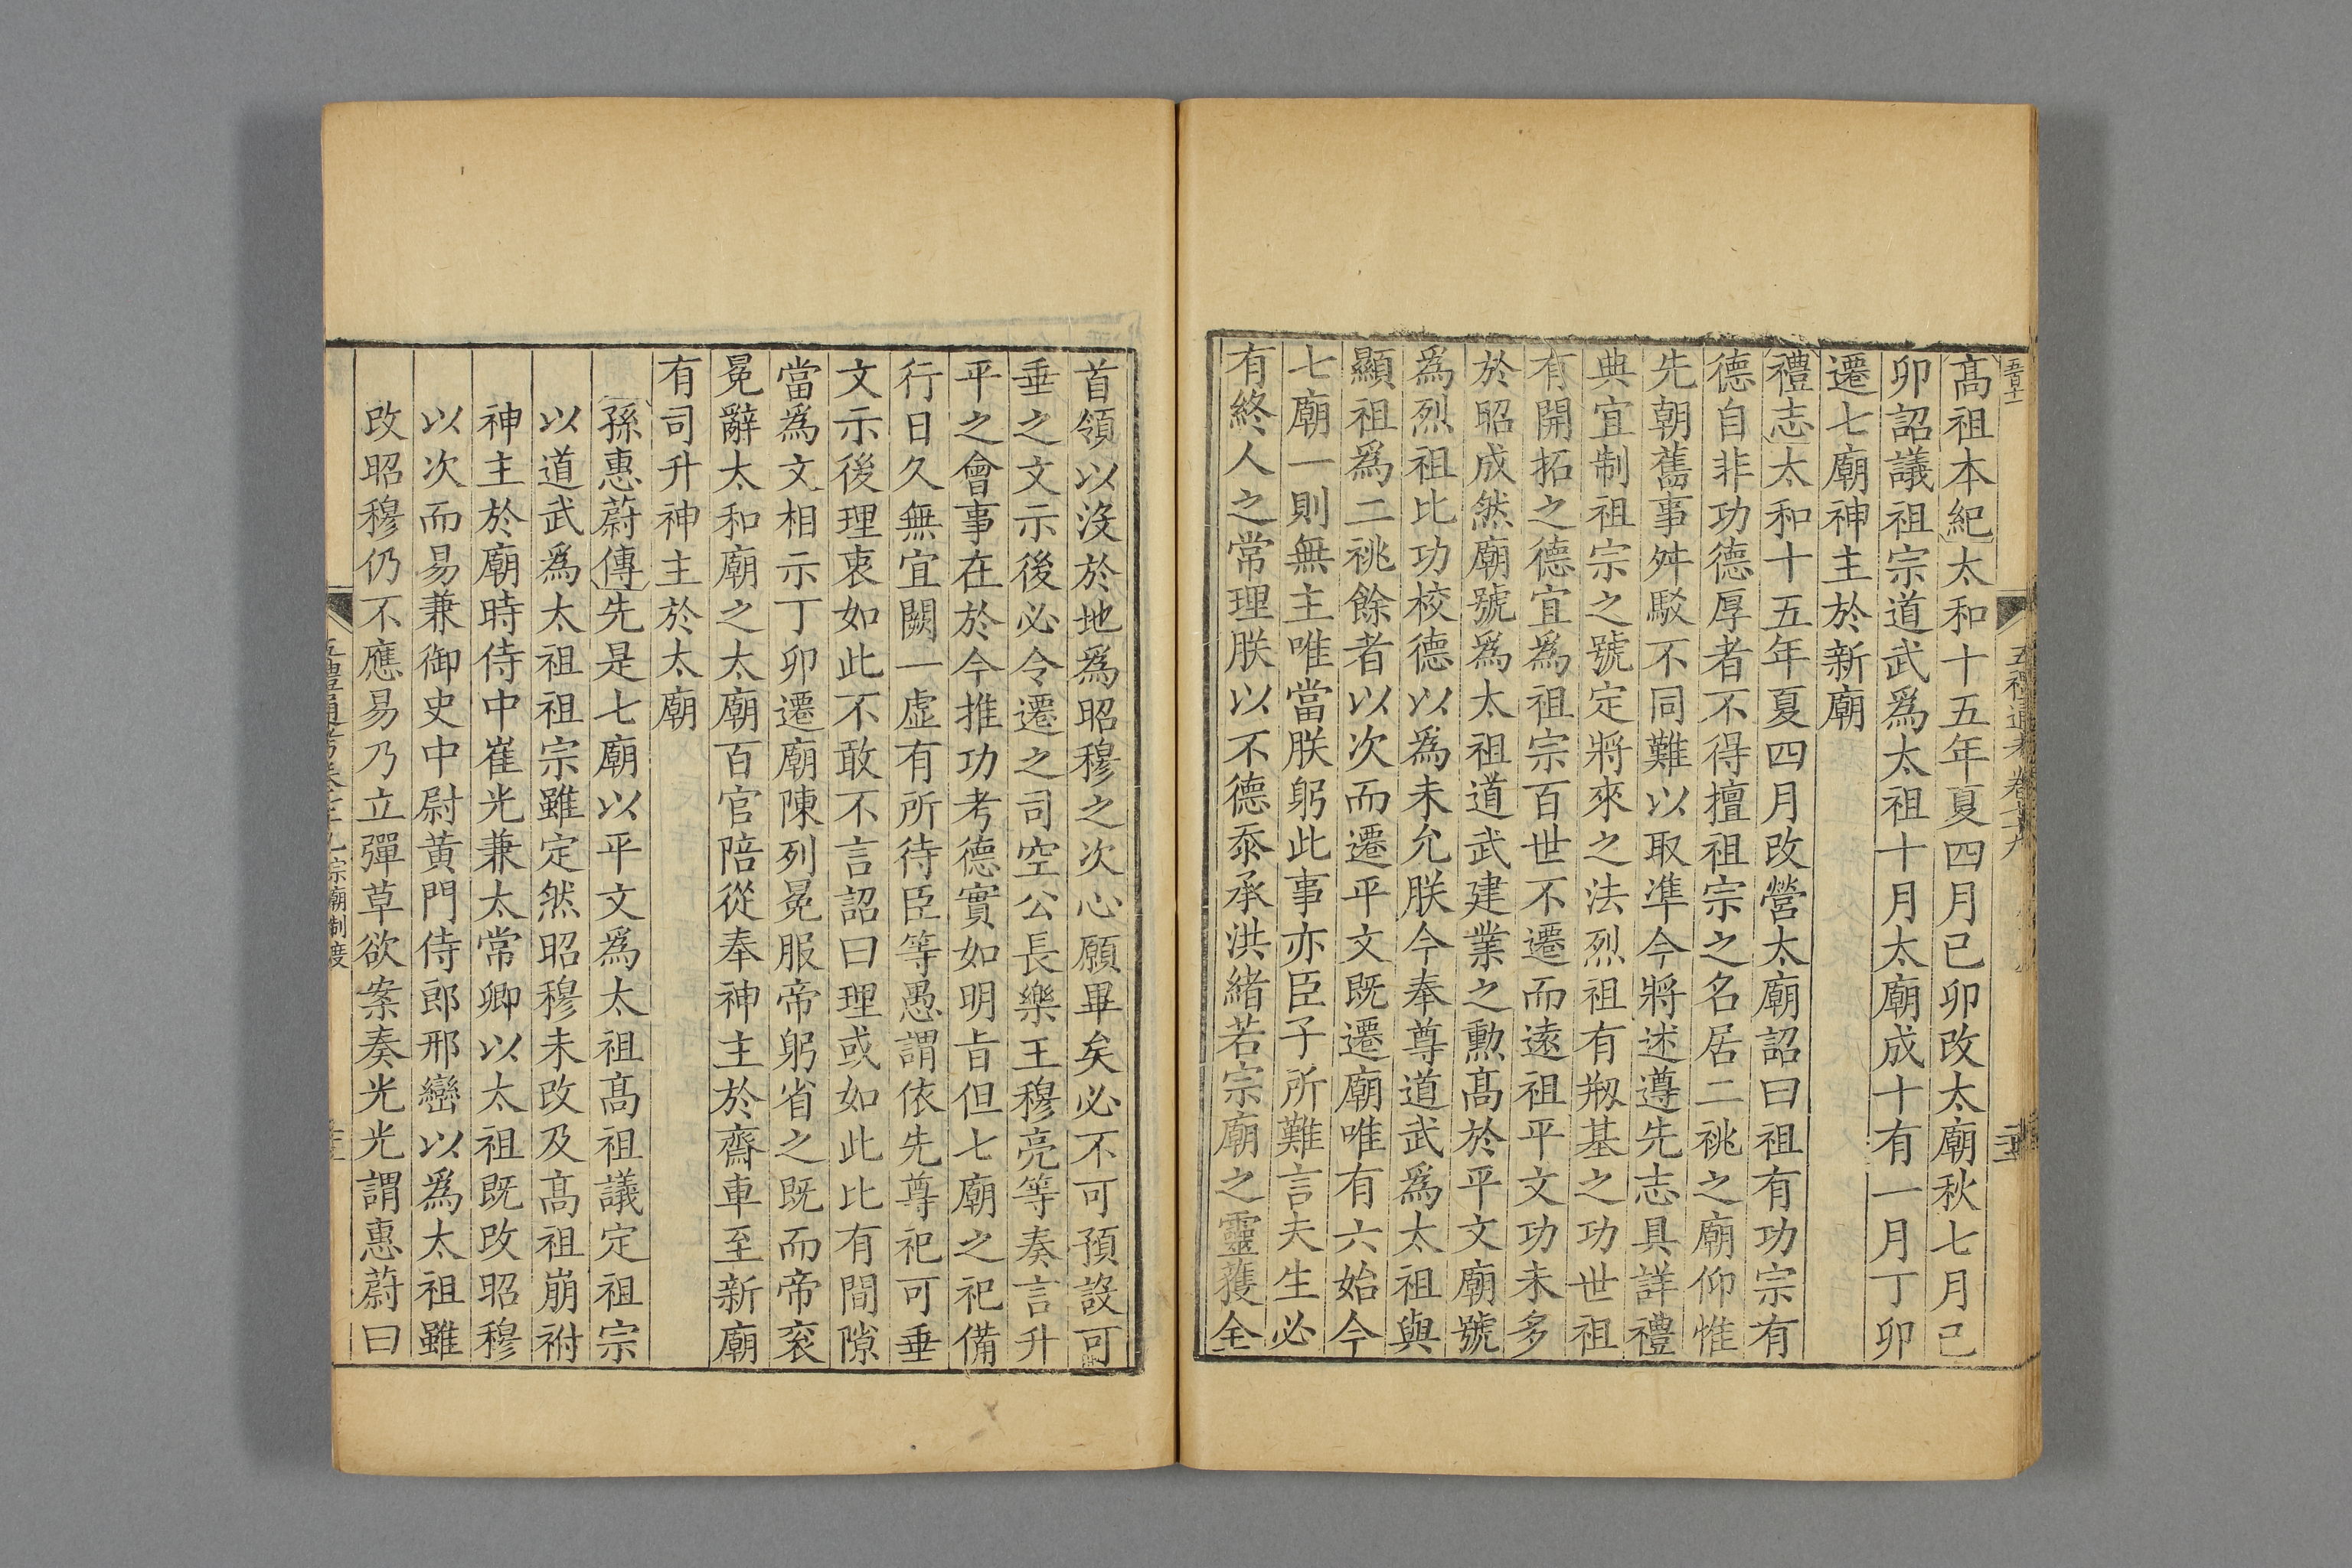 高祖本紀太和十五年夏四月已卯改太廟秋七月已
卯詔議祖宗道武爲太祖十月太廟成十有一月丁卯
遷七廟神主於新廟
禮志太和十五年夏四月改營太廟詔曰祖有功宗有
德自非功德厚者不得擅祖宗之名居二祧之廟仰惟
先朝舊事舛駁不同難以取準今將述遵先志具詳禮
典宜制祖宗之號定將來之法烈祖有剏基之功世祖
有開拓之德宜爲祖宗百世不遷而遠祖平文功未多
於昭成然廟號爲太祖道武建業之勲高於平文廟號
爲烈祖比功校德以爲未允朕今奉尊道武爲太祖與
顯祖爲二祧餘者以次而遷平文既遷廟唯有六始今
七廟一則無主唯當朕躬此事亦臣子所難言夫生必
有終人之常理朕以不德忝承洪緒若宗廟之靈獲全
首領以沒於地爲昭穆之次心願畢矣必不可預設可
垂之文示後必令遷之司空公長樂王穆亮等奏言升
平之會事在於今推功考德實如明旨但七廟之祀備
行日久無宜闕一虛有所待臣等愚謂依先尊祀可垂
文示後理衷如此不敢不言詔曰理或如此比有間隙
當爲文相示丁卯遷廟陳列冕服帝躬省之既而帝衮
冕辭太和廟之太廟百官陪從奉神主於齋車至新廟
有司升神主於太廟
孫惠蔚傳先是七廟以平文爲太祖高祖議定祖宗
以道武爲太祖祖宗雖定然昭穆未改及高祖崩祔
神主於廟時侍中崔光兼太常卿以太祖既改昭穆
以次而易兼御史中尉黃門侍郎邢巒以爲太祖雖
改昭穆仍不應易乃立彈草欲案奏光光謂惠蔚曰
宗廟制度